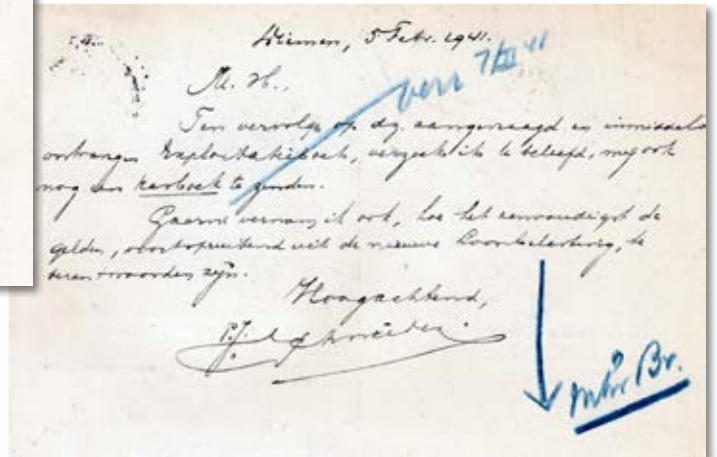 Diemen, 5 Febr. 1941.
verz 7/III 41
M. H.,
Ten vervolge op dz. aangevraagd en inmiddels
ontvangen Exploitatieboek, verzoek ik U beleefd, mij ook
nog een kasboek te zenden.
Gaarne vernam ik ook, hoe het eenvoudigst de
gelden, voortspruitend uit de nieuwe Loonbelasting, te
verantwoorden zijn.
Hoogachtend,
P.J.
Br.